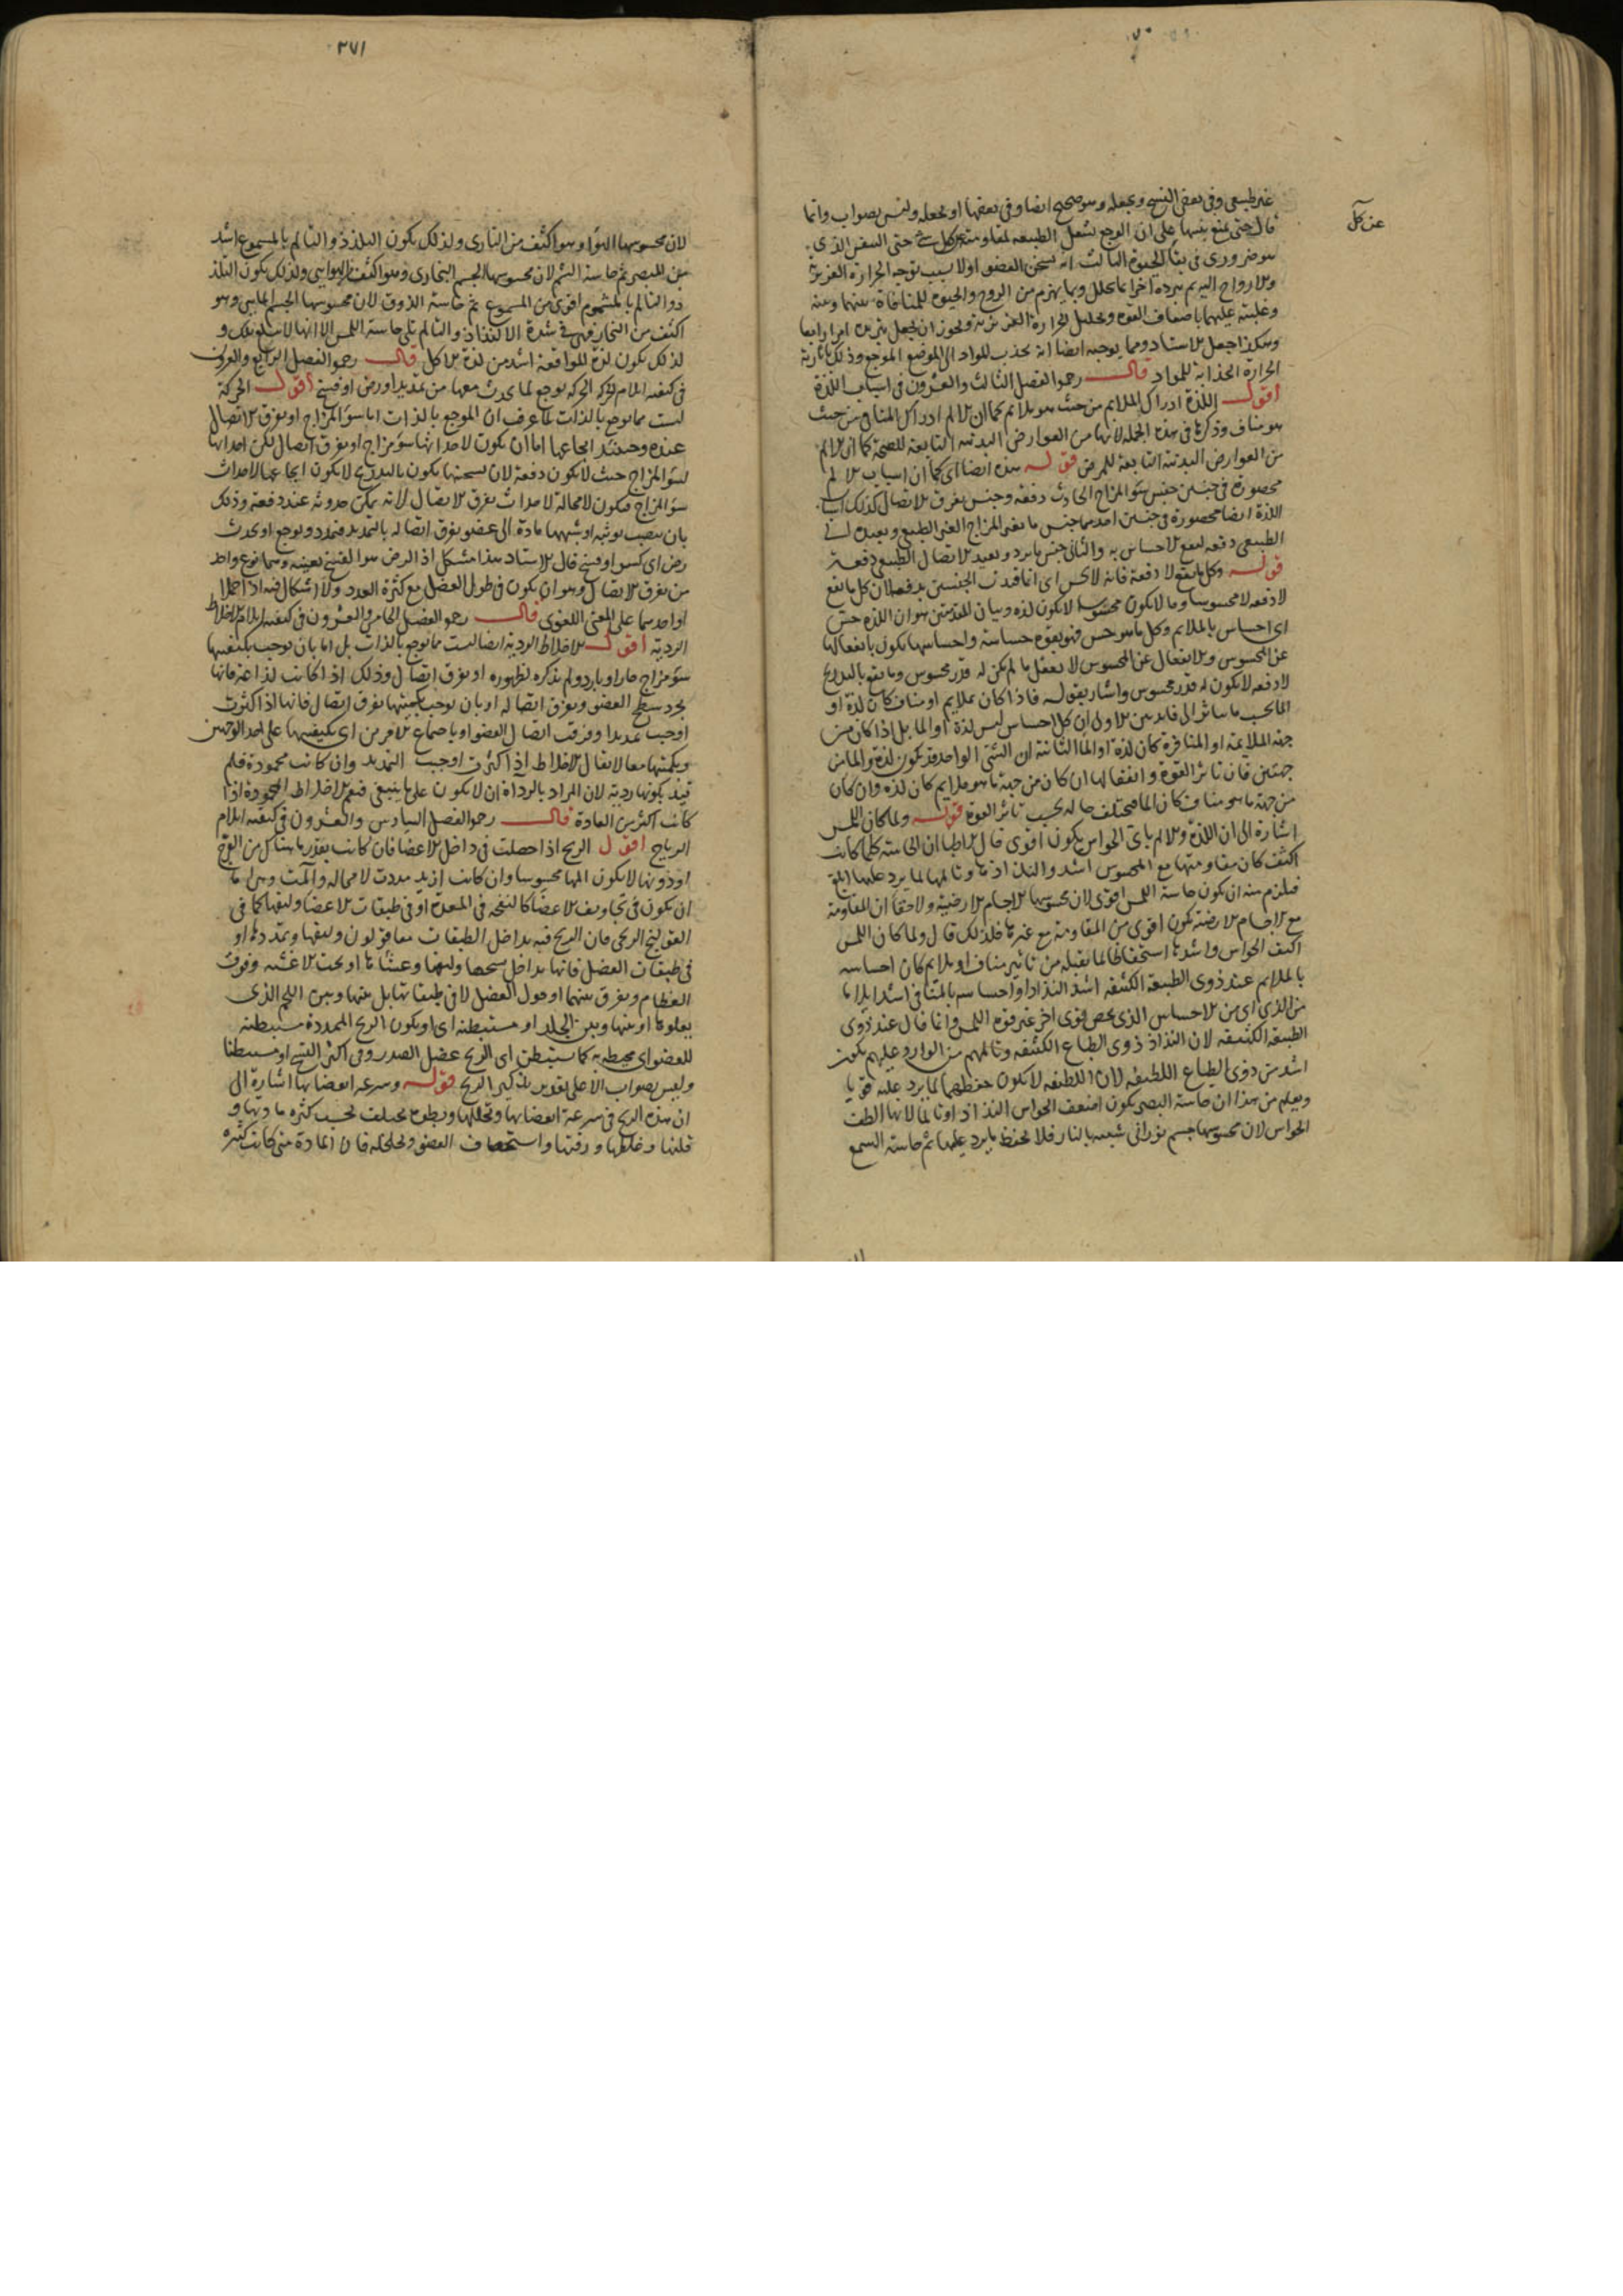 عن كل
غير طبيعى وفى بعض النسخ ويجعله وهو صحيح ايضا وفى بعضها او يجعله وليس بصواب وانما
قال حتى يمنع تنبيها على ان الوجع يشغل الطبيعة لمقاومته عن كل شئ حتى التنفس الذى
هو ضرورى فى بقاء الحيوة الثالث انه يسخن العضو اولا بسبب توجه الحرارة الغريزية
والارواح اليه ثم يبرده اخرا بما يحلل وبما يهزم من الروح والحيوة للمنافاة بينهما وبينه
وغلبته عليهما باضعاف القوة وتحليل الحرارة الغريزية ويجوز ان يجعل تبريده امرا رابعا
وهكذا جعل الاستاد ومما يوجبه ايضا انه يجذب المواد الى الموضع الموجع وذلك
الحرارة الجذابة للمواد قال رحمه الفصل الثالث والعشرون فى اسباب اللذة
اقول اللذة ادراك الملايم من حيث هو ملايم كما ان الالم ادراك المنافى من حيث
هو مناف وذكرها فى هذه الجملة لانها من العوارض البدنية التابعة للصحة كما ان الالم
من العوارض البدنية التابعة للمرض قوله هذه ايضا اى كما ان اسباب الالم
محصورة فى جنسين جنس سوء المزاج الحادث دفعة وجنس تفرق الاتصال كذلك اسباب
اللذة ايضا محصورة فى جنسين احدهما جنس ما يغير المزاج الغير الطبيعى ويعيده الى
الطبيعى دفعة ليقع الاحساس به والثانى جنس ما يرد ويعيد الاتصال الطبيعى دفعة
قوله وكل ما يقع لا دفعة فانه لا يحس اى انما قيدت الجنسين بدفعة لان كل ما يقع
لا دفعة لا محسوسا وما لا يكون محسوسا لا يكون لذة وبيان المقدمتين هو ان اللذة حس
اى احساس بالملايم وكل ما هو حس فهو بقوة حساسة واحساسها يكون بانفعالها
عن المحسوس والانفعال عن المحسوس لا يعقل ما لم يكن له قدر محسوس وما يقع بالتدريج
لا دفعة لا يكون له قدر محسوس واشار بقوله فاذا كان بملايم او مناف كان لذة او
الما بحسب ما يتاثر الى فايدتين الاولى ان كل احساس ليس لذة او الما بل اذا كان من
جهة الملايمة او المنافرة كان لذة او الما الثانية ان الشئ الواحد قد يكون لذة والما من
جهتين فان تاثر القوة وانفعالها ان كان من جهة ما هو ملايم كان لذة وان كان
من جهة ما هو مناف كان الما فيختلف حاله بحسب تاثر القوة قوله ولما كان اللمس
اشارة الى ان اللذة والالم باى الحواس يكون اقوى قال الاطبا ان الحاسة كلما كانت
اكثف كان مقاومتها مع المحسوس اشد والتذاذها وتالمها لما يرد عليها ابلغ
فيلزم منه ان يكون حاسة اللمس اقوى لان محسوسها الاجسام الارضية ولا خفا ان المقاومة
مع الاجسام الارضية يكون اقوى من المقاومة مع غيرها فلذلك قال ولما كان اللمس
اكثف الحواس واشدها استحفاظا لما يقبله من تاثير مناف او ملايم كان احساسه
بالملايم عند ذوى الطبيعة الكثيفة اشد التذاذا واحساسه بالمنافى اشد ايلاما
من الذى اى من الاحساس الذى يخص قوى اخر غير قوة اللمس وانما قال عند ذوى
الطبيعة الكثيفة لان التذاذ ذوى الطباع الكثيفة وتالمهم من الوارد عليهم يكون
اشد من ذوى الطباع اللطيفة لان اللطيفة لا يكون حفظها لما يرد عليه قويا
ويعلم من هذا ان حاسة البصر يكون اضعف الحواس التذاذا وتالما لانها الطف
الحواس لان محسوسها جسم نورانى شبيه بالنار فلا يحفظ ما يرد عليها ثم حاسة السمع
٢٧١
لان محسوسها الهواء وهو اكثف من النارى ولذلك يكون التلذذ والتالم بالمسموع اشد
من المبصر ثم حاسة الشم لان محسوسها الجسم البخارى وهو اكثف من الهوايى ولذلك يكون التلذ
ذ والتالم بالمشموم اقوى من المسموع ثم حاسة الذوق لان محسوسها الجسم المايى وهو
اكثف من البخار فهى فى شدة الالتذاذ والتالم تلى حاسة اللمس الا انها لا تبلغ تلك و
لذلك يكون لذة المواقعة اشد من لذة الاكل قال رحمه الفصل الرابع والعشرون
فى كيفية ايلام الحركة الحركة توجع لما يحدث معها من تمديد او رض او فسخ اقول الحركة
ليست مما توجع بالذات لما عرف ان الموجع بالذات اما سوء المزاج او تفرق الاتصال
عنده وحينئذ ايجاعها اما ان يكون لاحداثها سوء مزاج او تفرق اتصال لكن احداثها
لسوء المزاج حيث لا يكون دفعة لان تسخينها يكون بالتدريج لا يكون ايجاعها لاحداث
سوء المزاج فيكون لا محالة لاحداث تفرق الاتصال لانه يمكن حدوثه عنه دفعة وذلك
بان يصيب بوثبه او شبهها مادة الى عضو يفرق اتصاله بالتمديد فتمدد وتوجع او يحدث
رض اى كسر او فسخ قال الاستاد هذا مشكل اذ الرض هو الفسخ بعينه وهما نوع واحد
من تفرق الاتصال وهو ان يكون فى طول العضل مع كثرة العدد ولا اشكال فيه اذا حملا
او احدهما على المعنى اللغوى قال رحمه الفصل الخامس والعشرون فى كيفية ايلام الاخلاط
الردية اقول الاخلاط الردية ايضا ليست مما توجع بالذات بل اما بان توجب بكيفيتها
سوء مزاج حار او بارد ولم يذكره لظهوره او تفرق اتصال وذلك اذا كانت لذاعة فانها
تجرد سطح العضو وتفرق اتصاله او بان توجب بكميتها تفرق اتصال فانها اذا كثرت
اوجبت تمديدا وفرقت اتصال العضو او باجتماع الامرين اى بكيفيتها على احد الوجهين
وبكميتها معا لا يقال الاخلاط اذا كثرت اوجبت التمديد وان كانت محمودة فلم
قيد بكونها ردية لان المراد بالرداة ان لا يكون على ما ينبغى فيعم الاخلاط المحمودة اذا
كانت اكثر من العادة قال رحمه الفصل السادس والعشرون فى كيفية ايلام
الرياح اقول الريح اذا حصلت فى داخل الاعضا فان كانت بقدر ما يتاكل من الفرج
او دونها لا يكون المها محسوسا وان كانت ازيد مددت لا محالة وآلمت وهى اما
ان يكون فى تجاويف الاعضا كالنفخة فى المعدة او فى طبقات الاعضا وليفها كما فى
القولنج الريحى فان الريح فيه يداخل الطبقات معا قولون وليفها وتمددها او
فى طبقات العضل فانها يداخل شحمها وليفها وغشاها او تحت الاغشية وفوق
العظام وتفرق بينهما او حول العضل لا فى طبقاتها بل بينها وبين اللحم الذى
يعلوها او بينها وبين الجلد او مستبطنة اى او يكون الريح الممددة مستبطنة
للعضو اى محيطة به كما يستبطن اى الريح عضل الصدر وفى اكثر النسخ او مستبطنا
وليس بصواب الا على تقدير تذكير الريح قوله وسرعة انفضاضها اشارة الى
ان هذه الريح فى سرعة انفضاضها وتحللها وبطوه يختلف بحسب كثرة مادتها و
قلتها وغلظها ورقتها واستحصاف العضو وتخلخله فان المادة متى كانت كثيرة